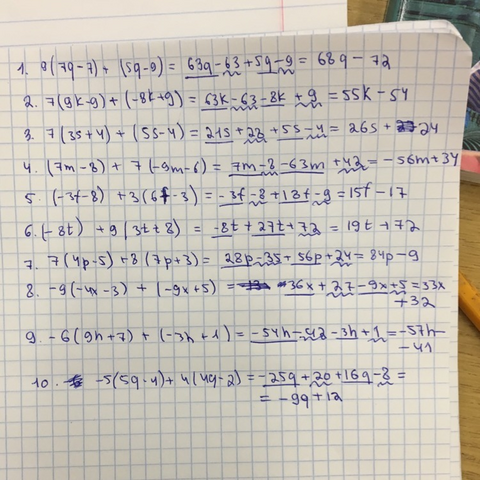 1. 9(7q-7)+(5q-9)=63q-63+5q-9=68q-72
2. 7(9k-9)+(-8k+9)=63k-63-8k+9=55k-54
3. 7(3s+4)+(5s-4)=21s+28+5s-4=26s+24
4. (7m-8)+7(-9m-6)=7m-8-63m+42=-56m+34
5. (-3f-8)+3(6f-3)=-3f-8+18f-9=15f-17
6. (-8t)+9(3t+8)=-8t+27t+72=19t+72
7. 7(4p-5)+8(7p+3)=28p-35+56p+24=84p-9
8. -9(-4x-3)+(-9x+5)=36x+27-9x+5=33x
+32
9. -6(9h+7)+(-3h+1)=-54h-42-3h+1=-57h
-41
10. -5(5q-4)+4(4q-2)=-25q+20+16q-8=
=-9q+12